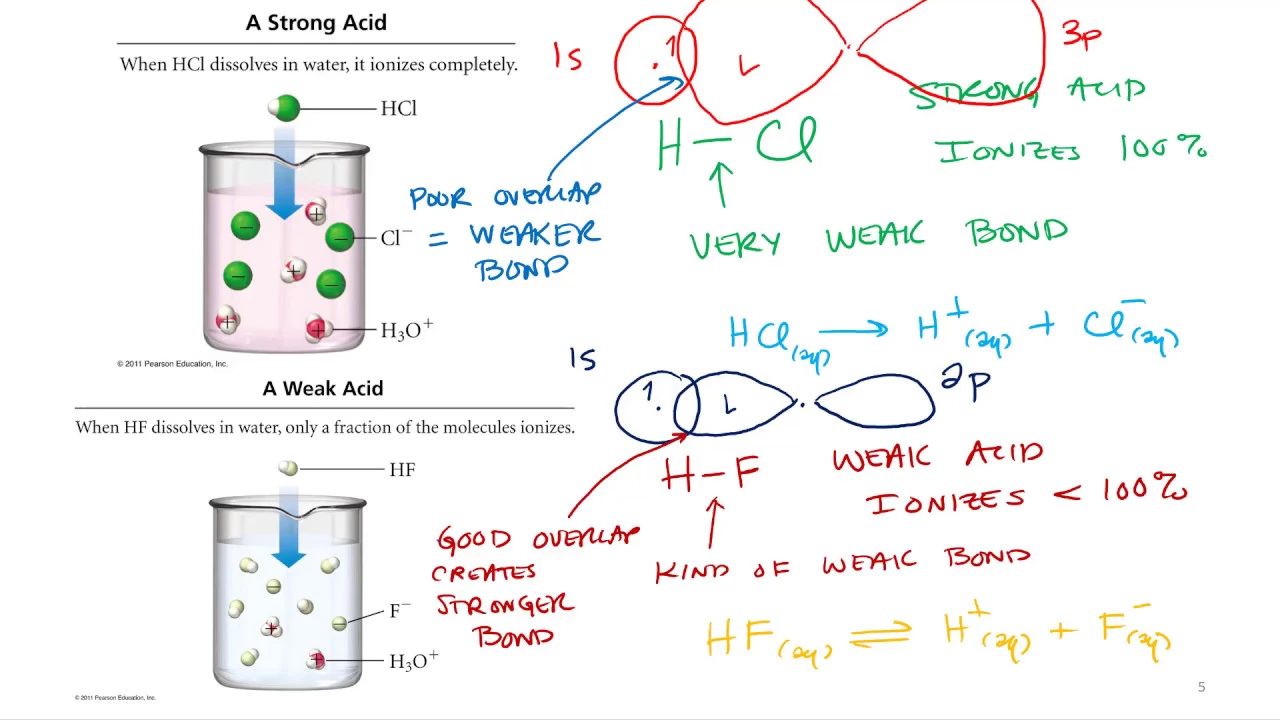 A Strong Acid
When HCl dissolves in water, it ionizes completely.
HCl
Cl⁻
H₃O⁺
© 2011 Pearson Education, Inc.
1s
1
3p
STRONG ACID
IONIZES 100%
H — Cl
POOR OVERLAP
= WEAKER
BOND
VERY WEAK BOND
HCl(aq) → H⁺(aq) + Cl⁻(aq)
A Weak Acid
When HF dissolves in water, only a fraction of the molecules ionizes.
HF
F⁻
H₃O⁺
© 2011 Pearson Education, Inc.
1s
1
2p
H — F
WEAK ACID
IONIZES < 100%
GOOD OVERLAP
CREATES
STRONGER
BOND
KIND OF WEAK BOND
HF(aq) ⇌ H⁺(aq) + F⁻(aq)
5